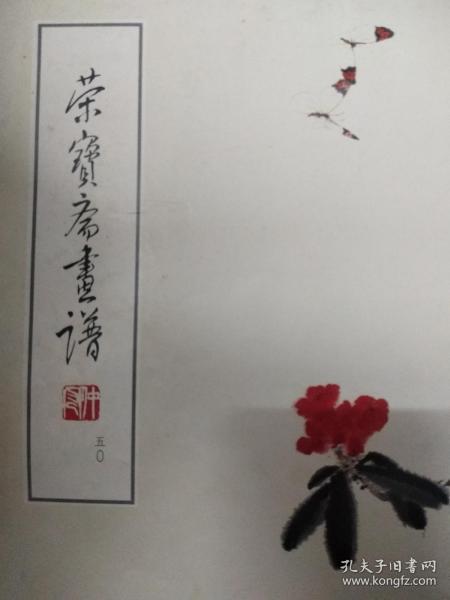 荣寳斋畫谱
五〇
孔夫子旧书网
www.kongfz.com